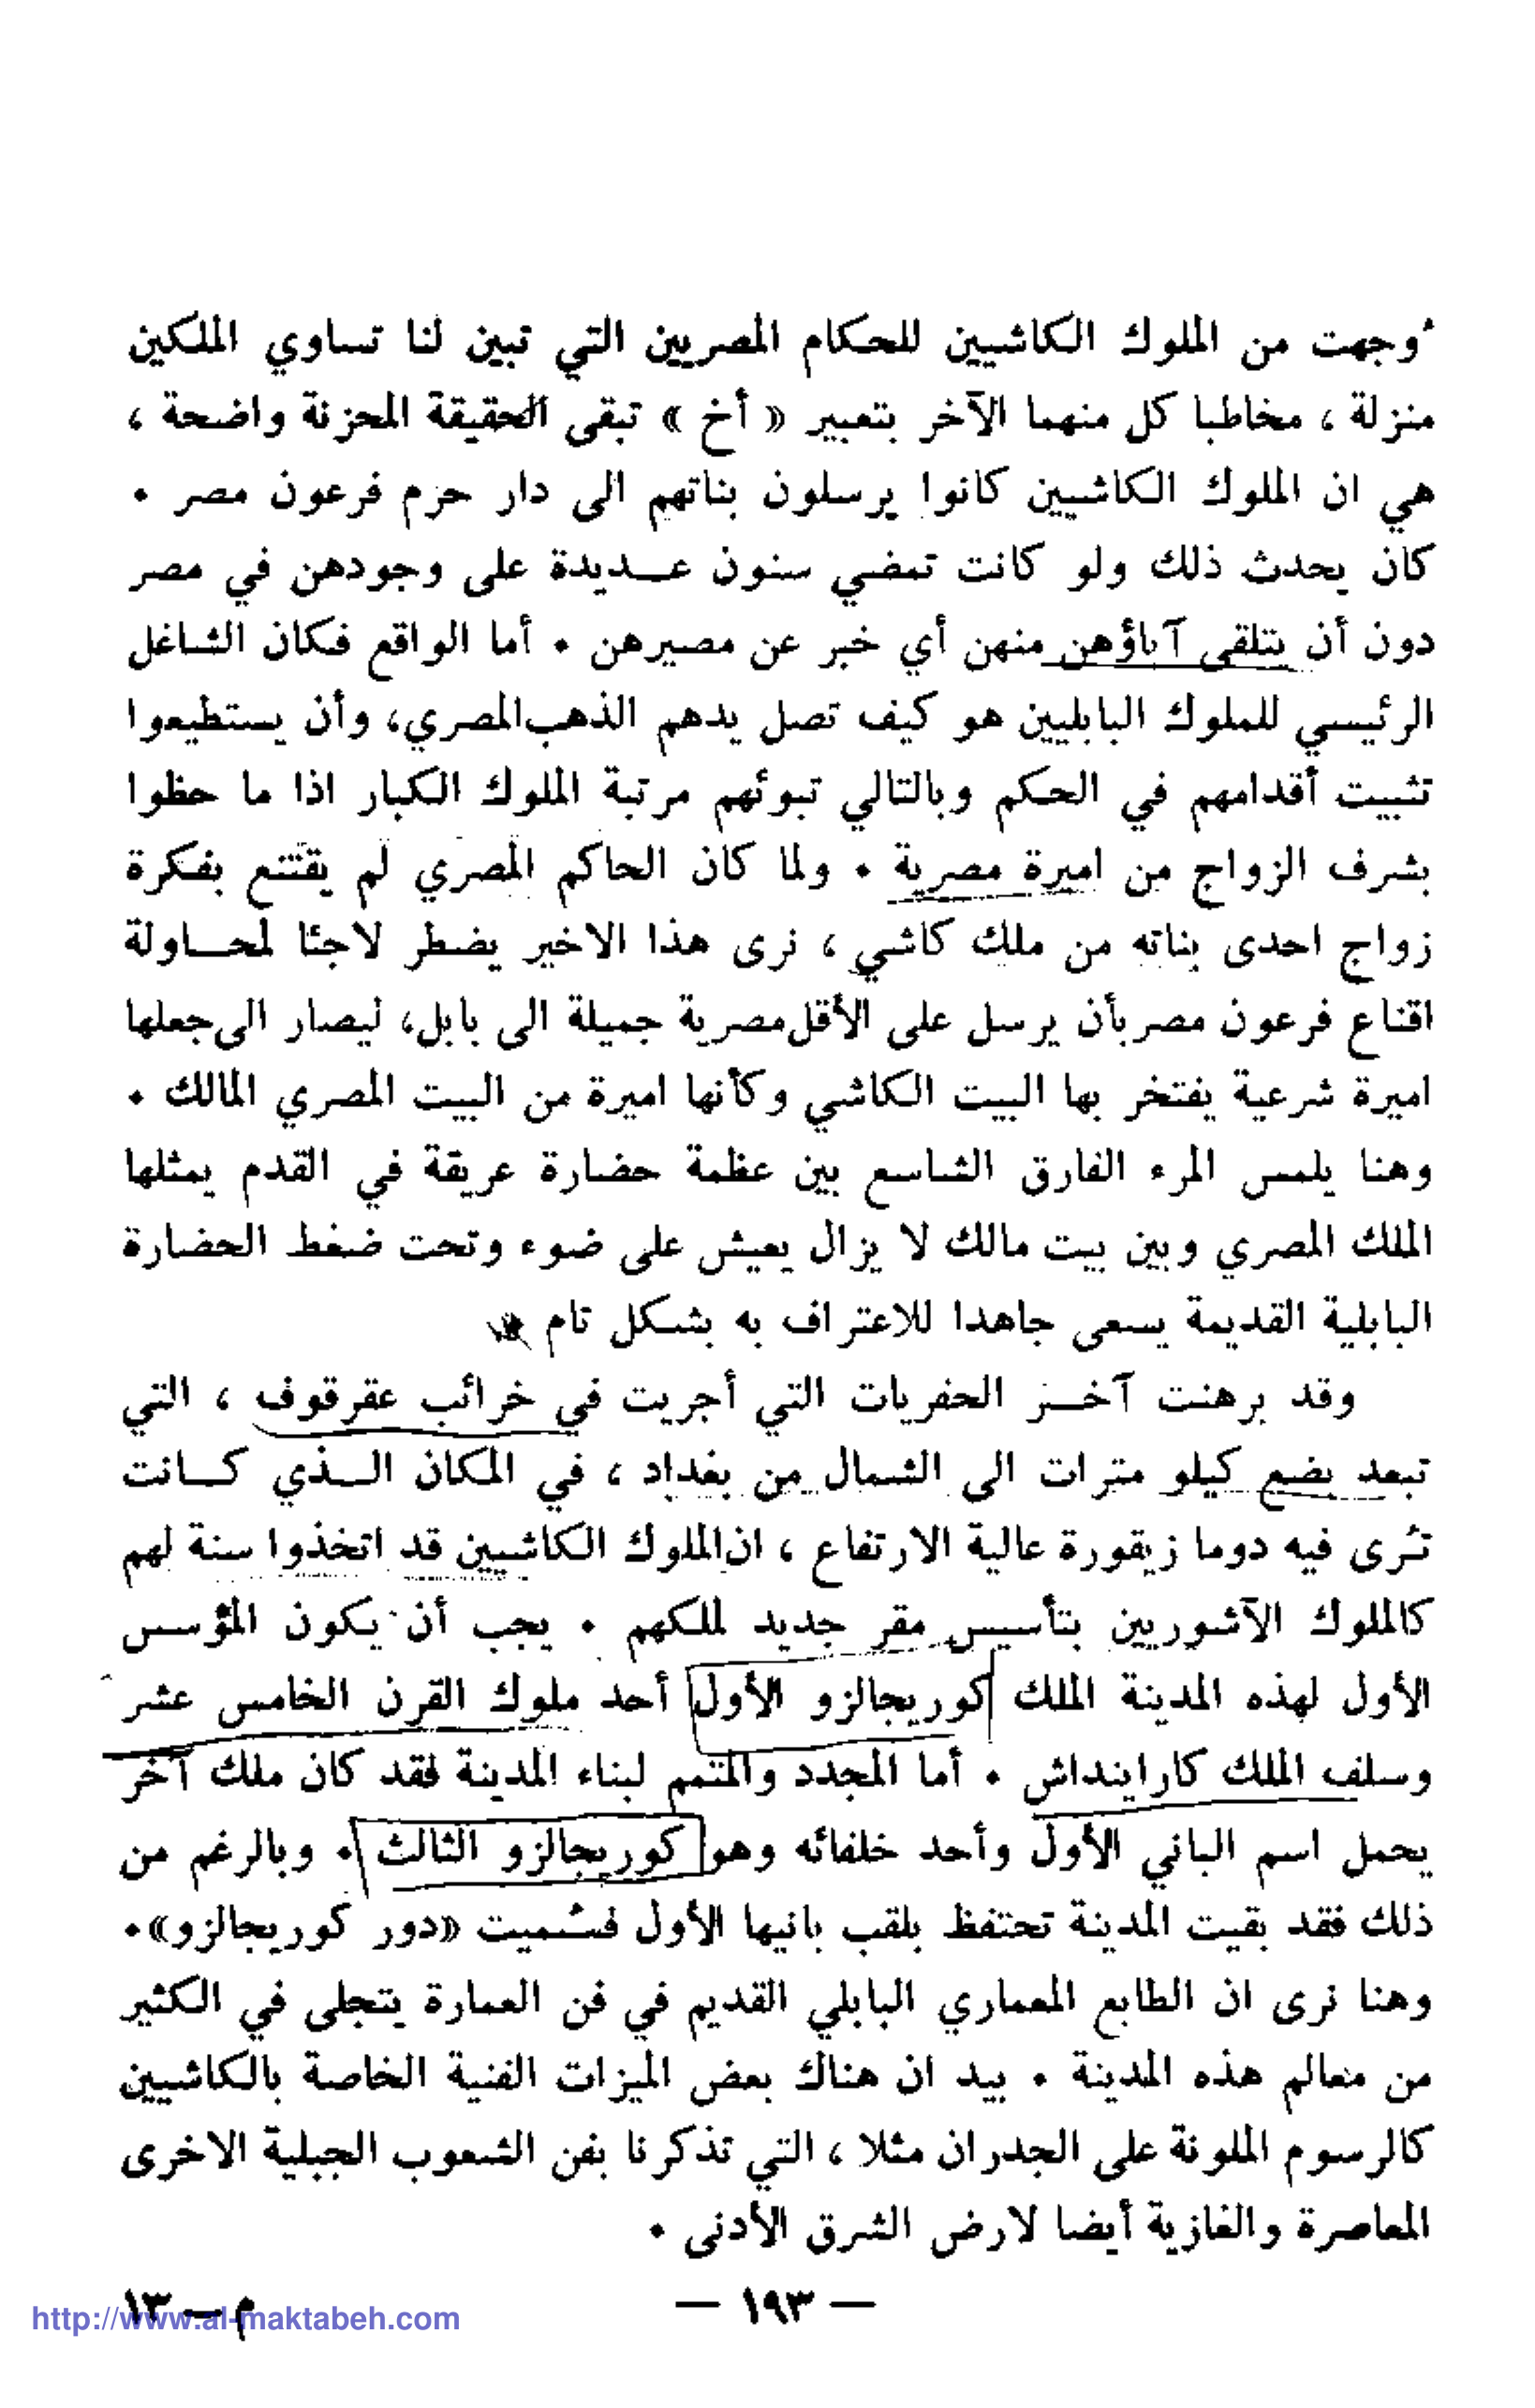 وُجهت من الملوك الكاشيين للحكام المصريين التي تبين لنا تساوي الملكين
منزلة ، مخاطبا كل منهما الآخر بتعبير « أخ » تبقى الحقيقة المحزنة واضحة ،
هي ان الملوك الكاشيين كانوا يرسلون بناتهم الى دار حرم فرعون مصر .
كان يحدث ذلك ولو كانت تمضي سنون عـديدة على وجودهن في مصر
دون أن يتلقى آباؤهن منهن أي خبر عن مصيرهن . أما الواقع فكان الشاغل
الرئيسي للملوك البابليين هو كيف تصل يدهم الذهب المصري، وأن يستطيعوا
تثبيت أقدامهم في الحكم وبالتالي تبوئهم مرتبة الملوك الكبار اذا ما حظوا
بشرف الزواج من اميرة مصرية . ولما كان الحاكم المصري لم يقتنع بفكرة
زواج احدى بناته من ملك كاشي ، نرى هذا الاخير يضطر لاجئا لمحـاولة
اقناع فرعون مصر بأن يرسل على الأقل مصرية جميلة الى بابل، ليصار الى جعلها
اميرة شرعية يفتخر بها البيت الكاشي وكأنها اميرة من البيت المصري المالك .
وهنا يلمس المرء الفارق الشاسع بين عظمة حضارة عريقة في القدم يمثلها
الملك المصري وبين بيت مالك لا يزال يعيش على ضوء وتحت ضغط الحضارة
البابلية القديمة يسعى جاهدا للاعتراف به بشكل تام
وقد برهنت آخـر الحفريات التي أجريت في خرائب عقرقوف ، التي
تبعد بضع كيلو مترات الى الشمال من بغداد ، في المكان الـذي كـانت
تُرى فيه دوما زيقورة عالية الارتفاع ، ان الملوك الكاشيين قد اتخذوا سنة لهم
كالملوك الآشوريين بتأسيس مقر جديد لملكهم . يجب أن يكون المؤسس
الأول لهذه المدينة الملك كوريجالزو الأول أحد ملوك القرن الخامس عشر
وسلف الملك كاراينداش . أما المجدد والمتمم لبناء المدينة فقد كان ملك آخر
يحمل اسم الباني الأول وأحد خلفائه وهو كوريجالزو الثالث . وبالرغم من
ذلك فقد بقيت المدينة تحتفظ بلقب بانيها الأول فسُميت «دور كوريجالزو».
وهنا نرى ان الطابع المعماري البابلي القديم في فن العمارة يتجلى في الكثير
من معالم هذه المدينة . بيد ان هناك بعض الميزات الفنية الخاصة بالكاشيين
كالرسوم الملونة على الجدران مثلا ، التي تذكرنا بفن الشعوب الجبلية الاخرى
المعاصرة والغازية أيضا لارض الشرق الأدنى .
— ١٩٣ —
م – ١٣
http://www.al-maktabeh.com